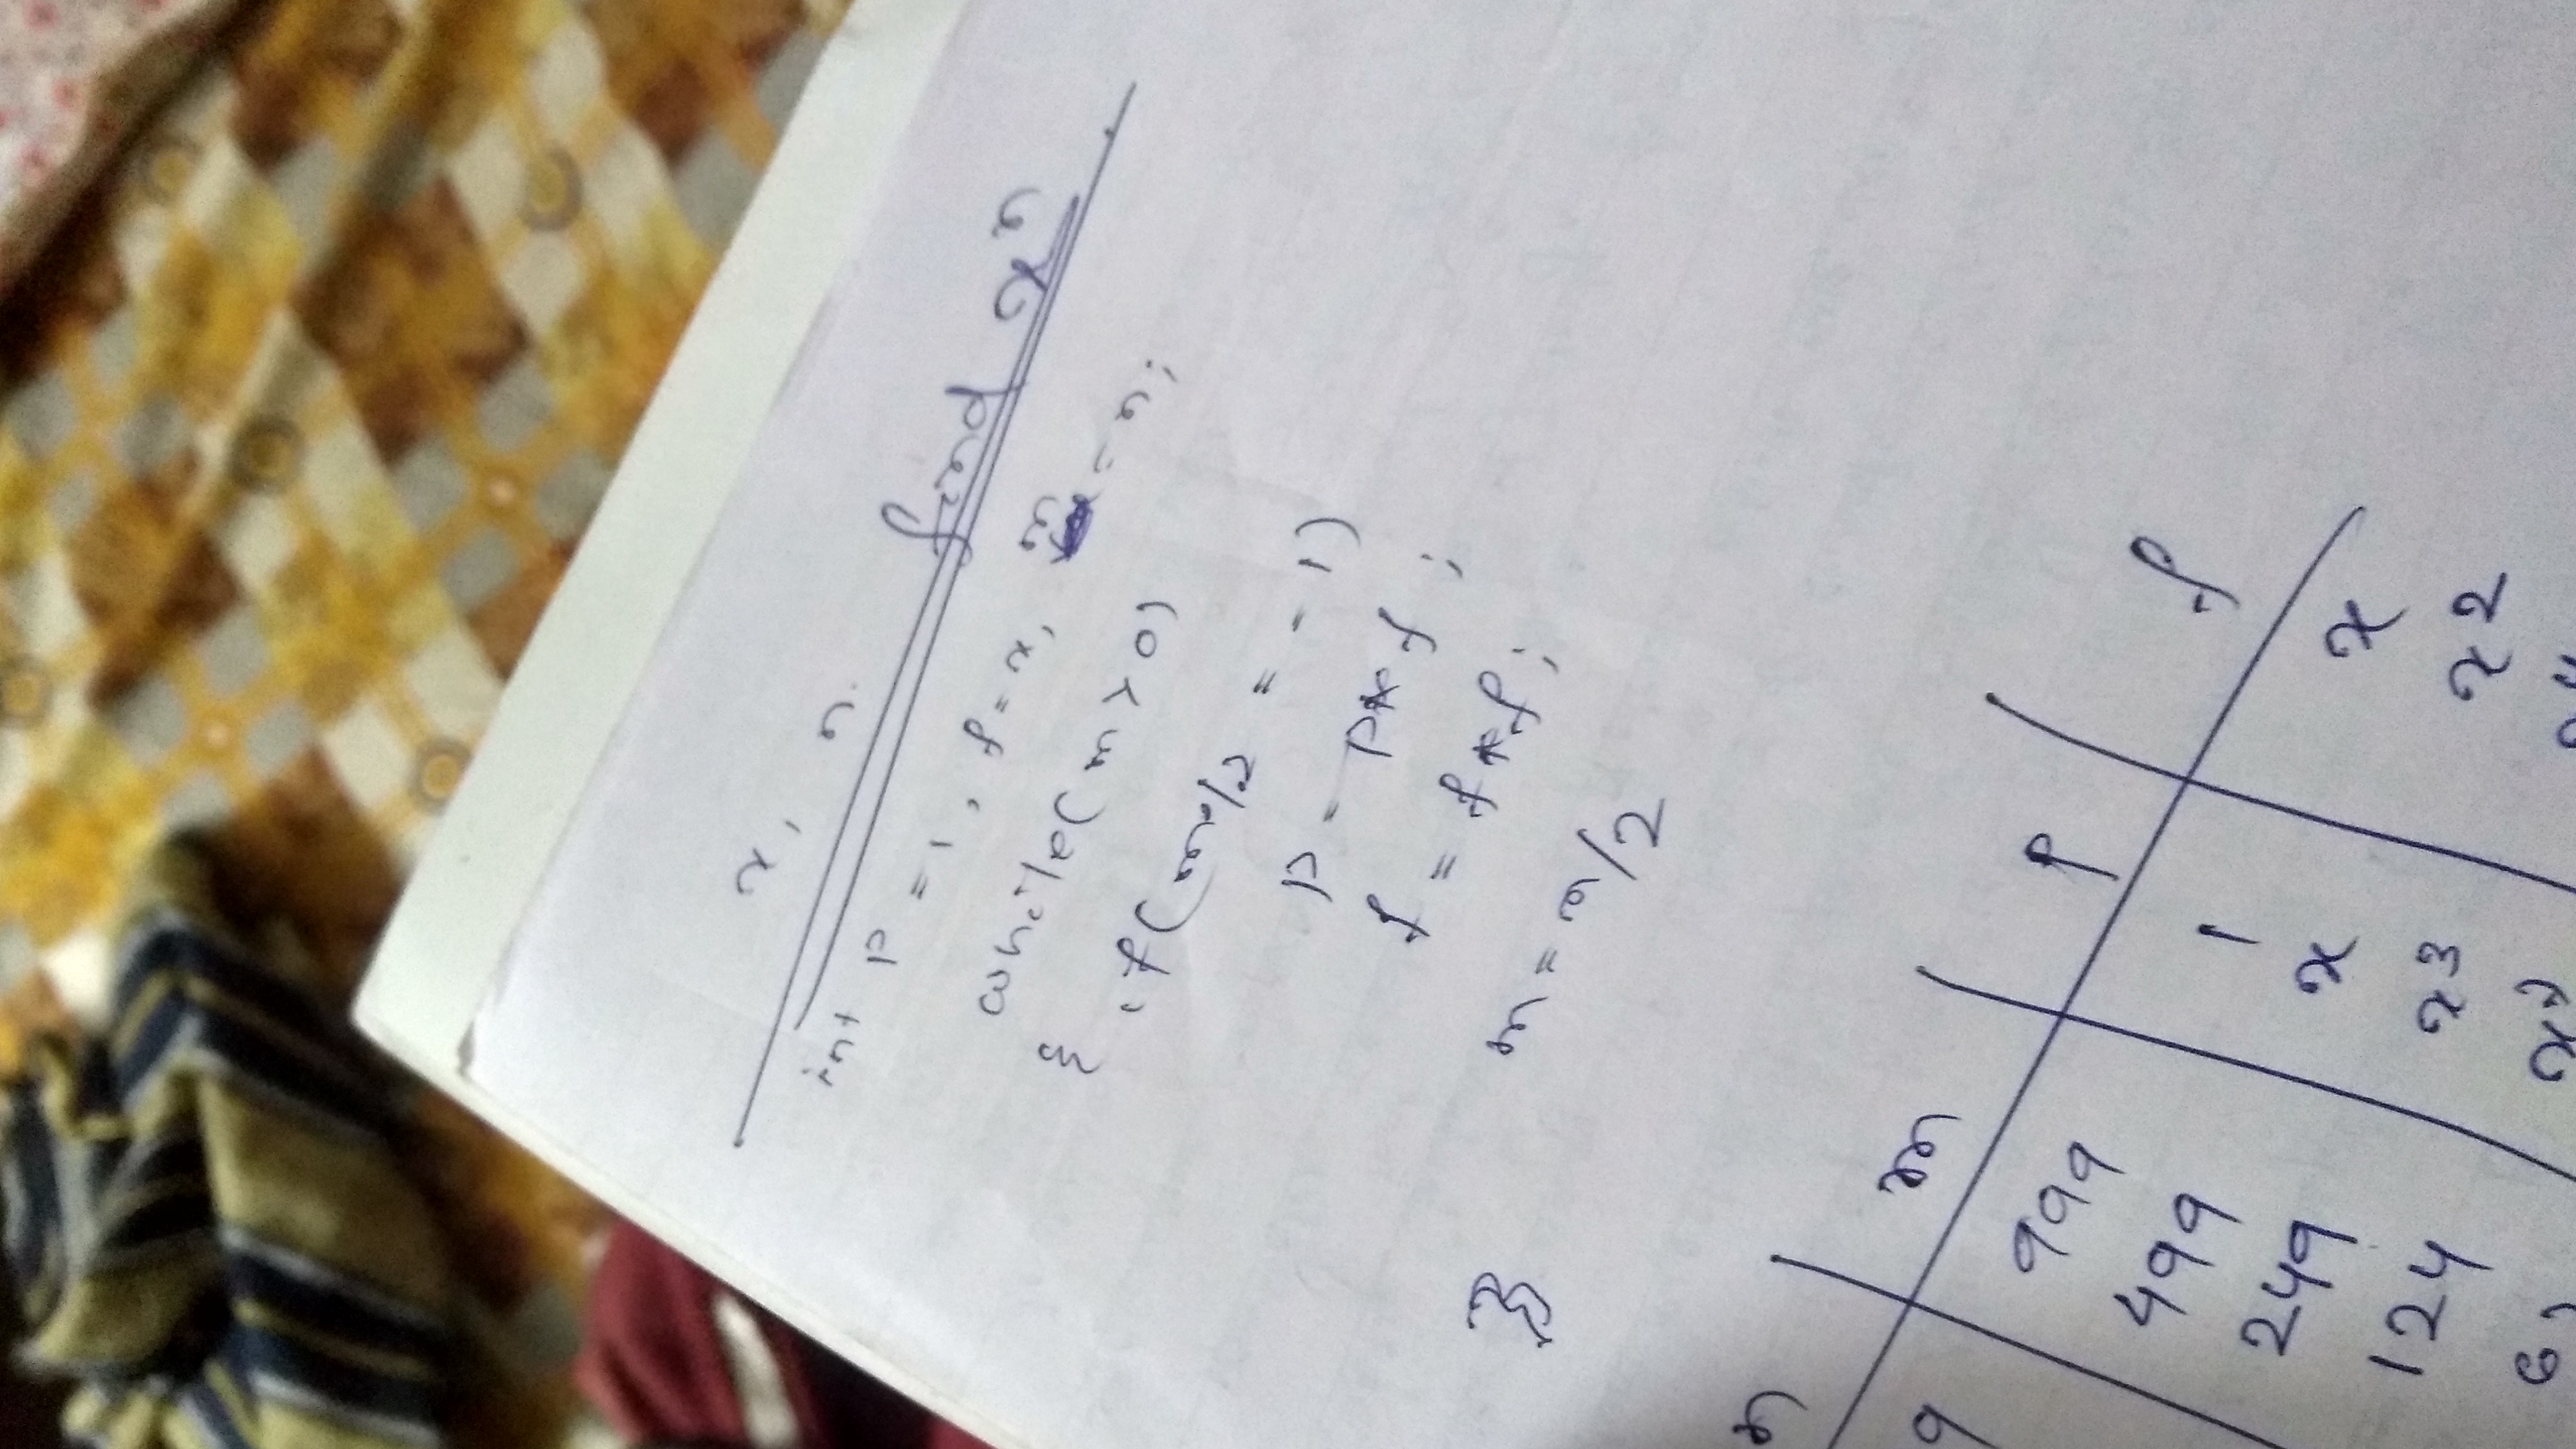 x, n. find xⁿ
int p = 1, f = x, m = n;
while(m > 0)
{ if(m%2 == 1)
p = p*f;
f = f*f;
m = m/2
}
n | m | p | f
9 | 999 | 1 | x
499 | x | x2
249 | x3
124 | x7